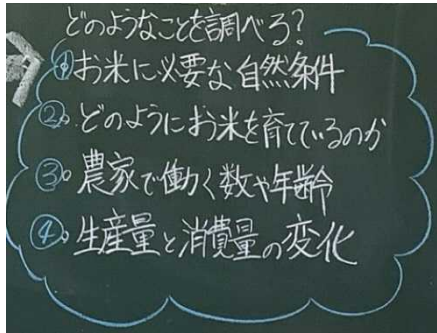 どのようなことを調べる?
①お米に必要な自然条件
②どのようにお米を育てているのか
③農家で働く数や年齢
④生産量と消費量の変化